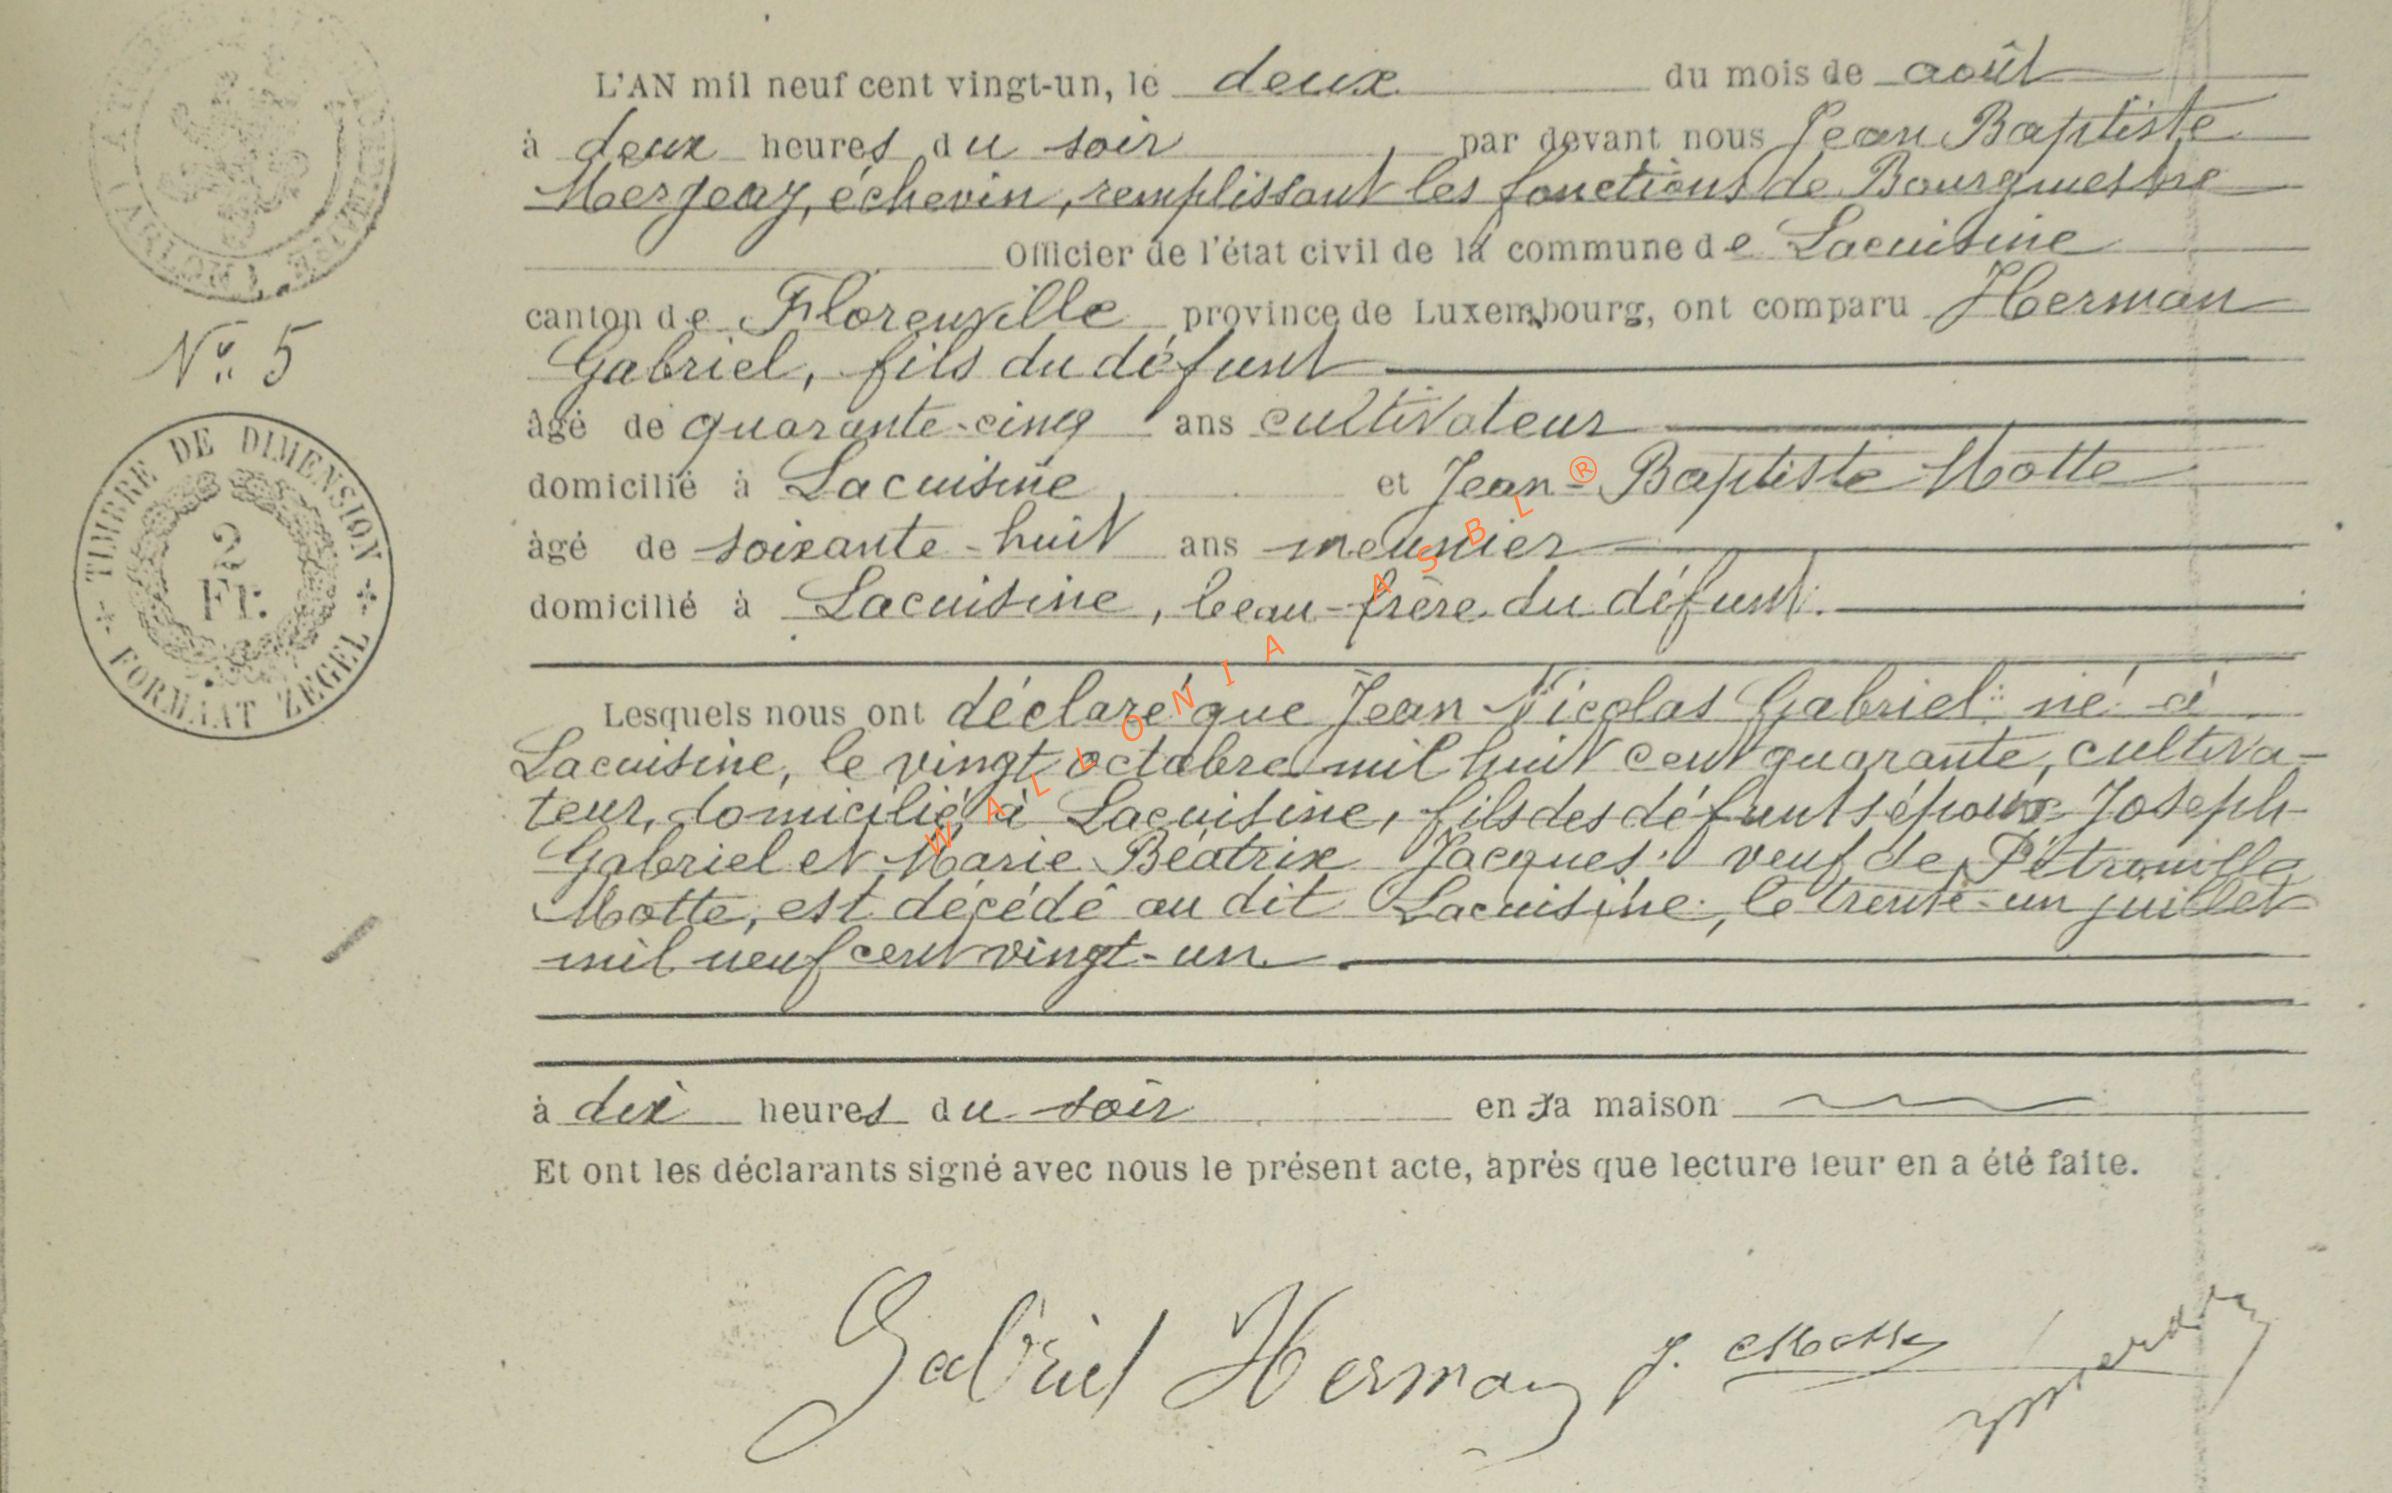 L'AN mil neuf cent vingt-un, le deux du mois de août
à deux heures du soir par devant nous Jean Baptiste
échevin, remplissant les fonctions de Bourgmestre
Officier de l'état civil de la commune de Lacuisine
canton de Florenville province de Luxembourg, ont comparu Herman
Nº 5
Gabriel, fils du défunt
âgé de quarante-cinq ans cultivateur
domicilié à Lacuisine, et Jean-Baptiste Motte
âgé de soixante-huit ans meunier
domicilié à Lacuisine, beau-frère du défunt.
TIMBRE DE DIMENSION
2
Fr.
FORMAAT ZEGEL
Lesquels nous ont déclaré que Jean Nicolas Gabriel né à
Lacuisine, le vingt octobre mil huit cent quarante, cultiva-
teur, domicilié à Lacuisine, fils des défunts époux Joseph
Gabriel et Marie Béatrix Jacques, veuf de Pétronille
Motte, est décédé au dit Lacuisine, le trente-un juillet
mil neuf cent vingt-un
à dix heures du soir en sa maison
Et ont les déclarants signé avec nous le présent acte, après que lecture leur en a été faite.
Gabriel Herman J. Motte
WALLONIA ASBL ®